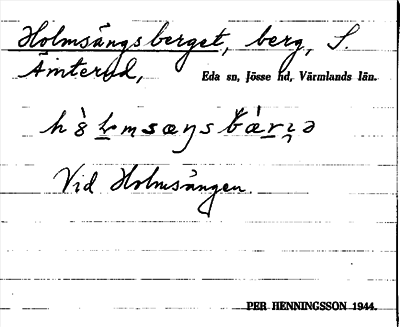 Holmsängsberget, berg, S.
Åmterud, Eda sn, Jösse hd, Värmlands län.
Vid Holmsängen.
PER HENNINGSSON 1944.